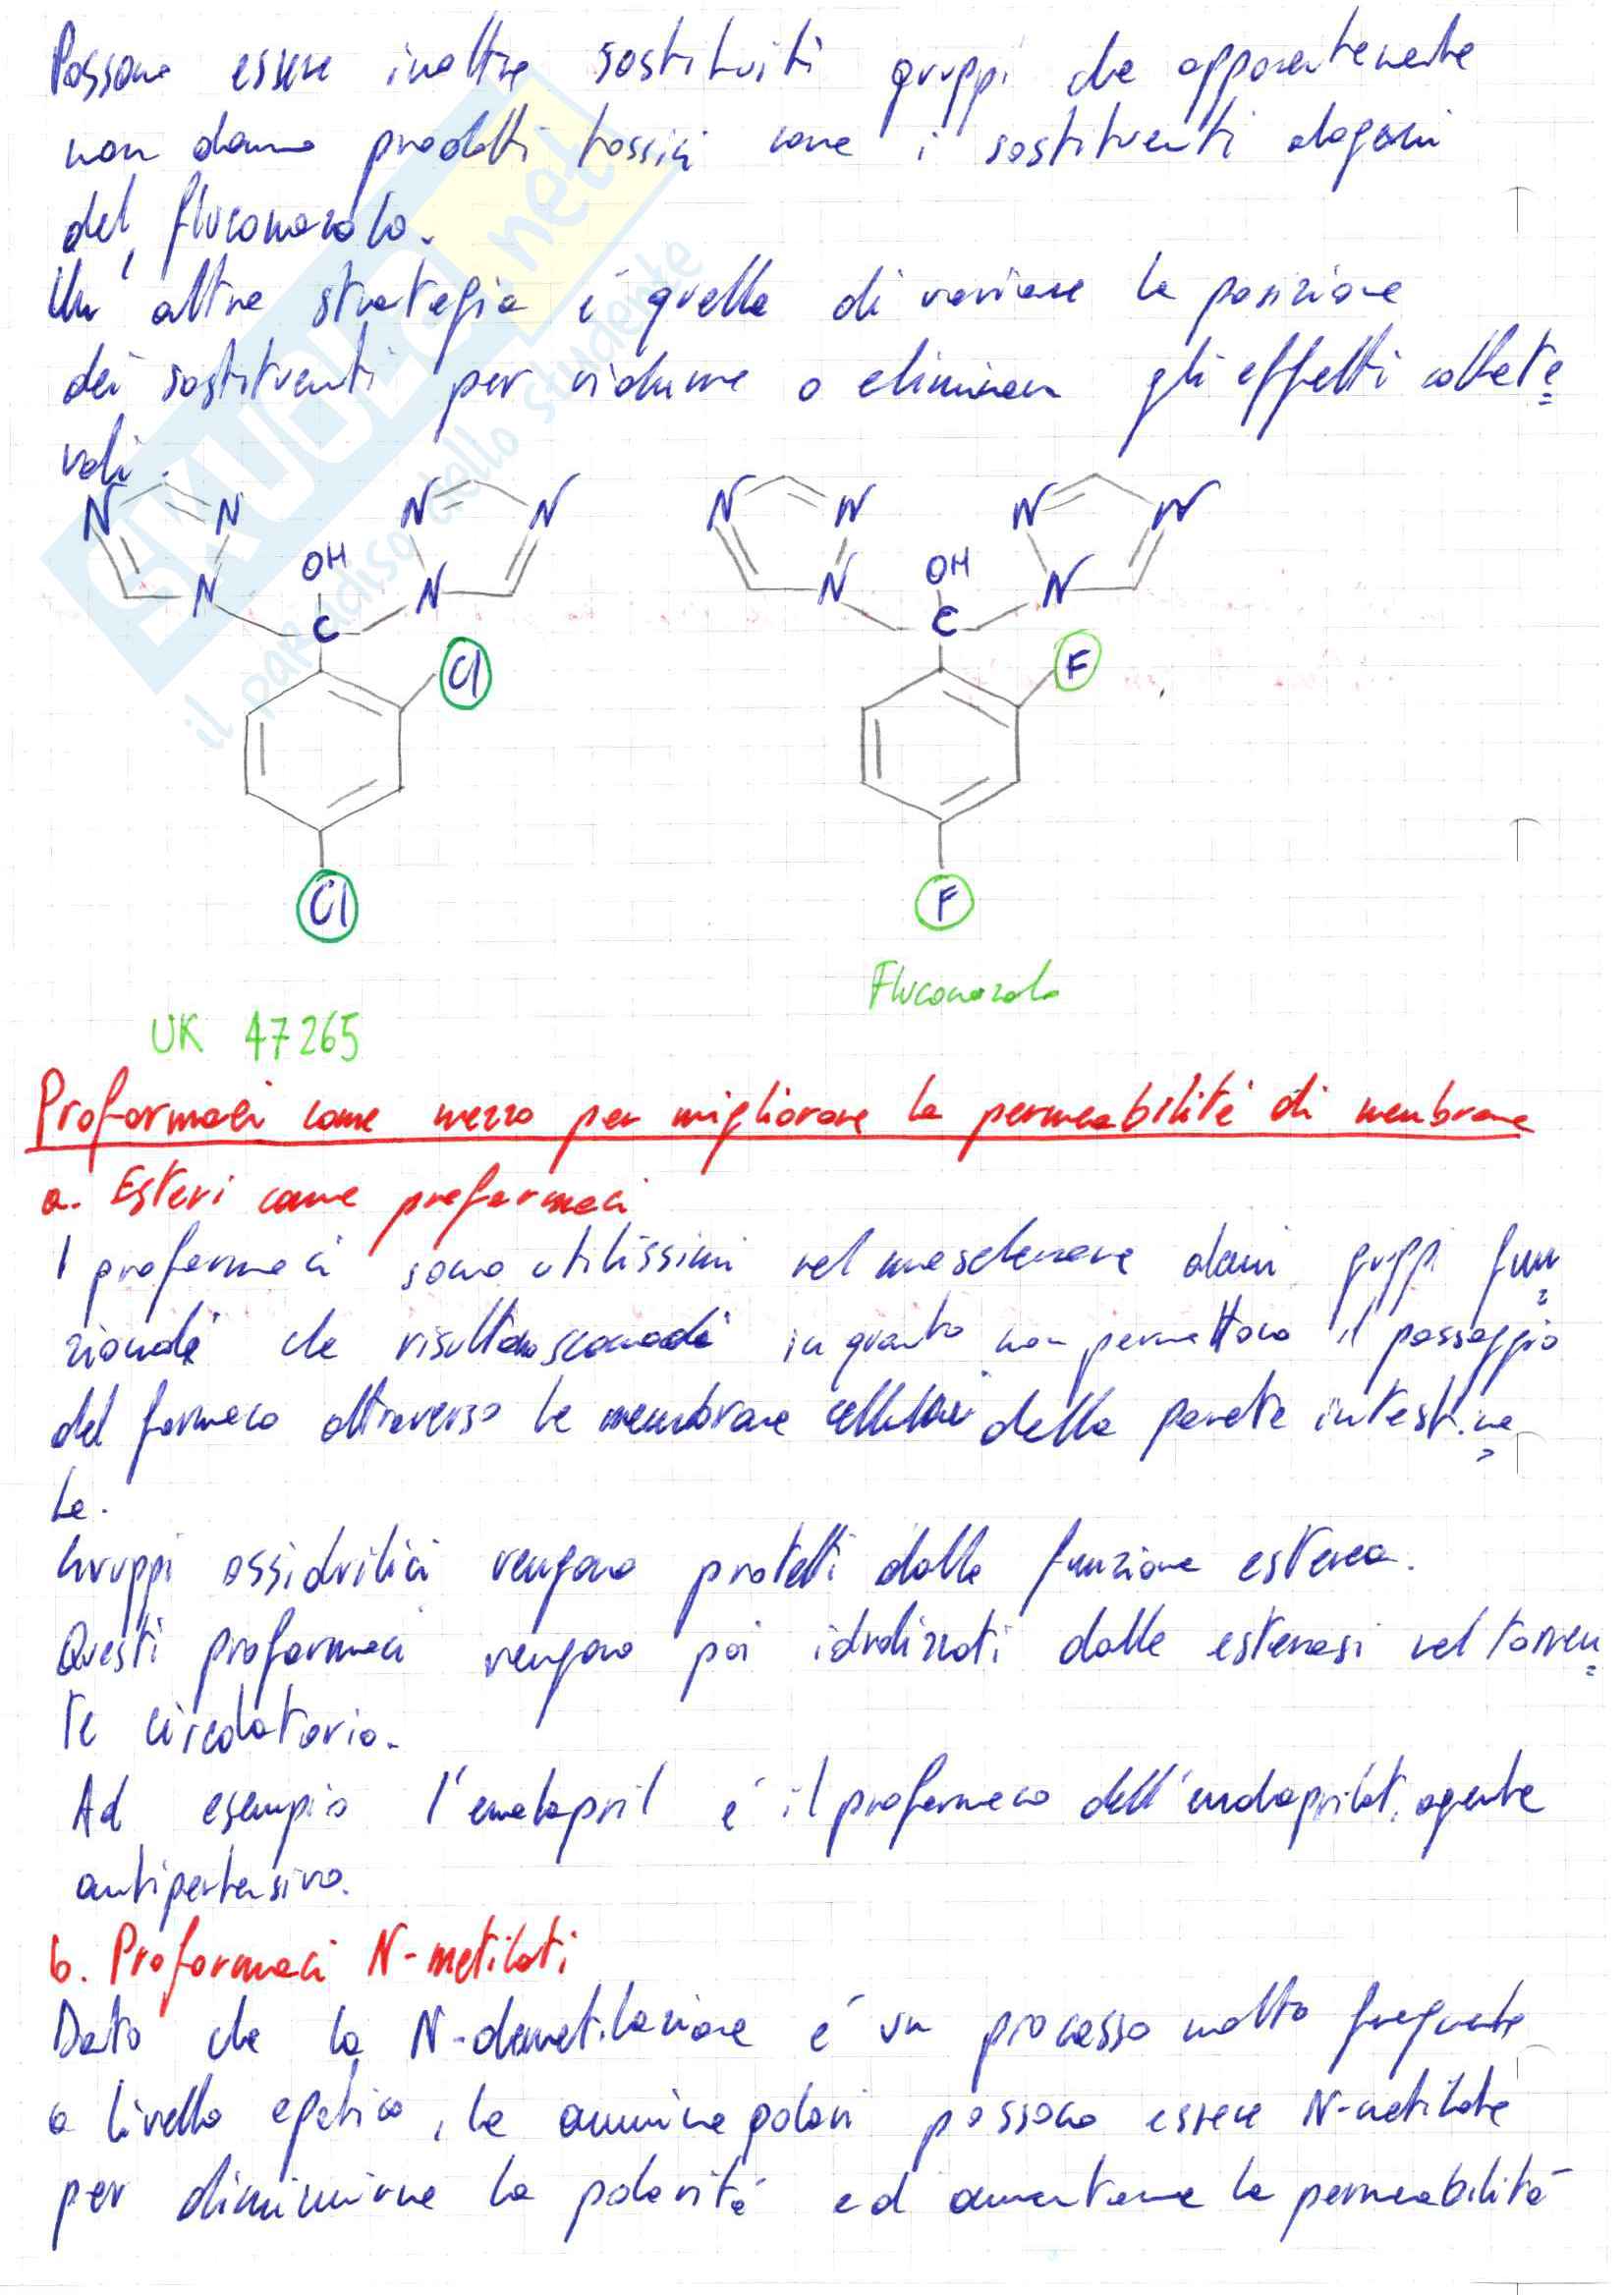 Possono essere inoltre sostituiti gruppi che apparentemente
non danno prodotti tossici come i sostituenti alogeni
del fluconazolo.
Un'altra strategia é quella di variare la posizione
dei sostituenti per ridurre o eliminare gli effetti collate=
rali.
N N N N N N N N
OH OH
N N N N
C C
Cl F
Cl F
Fluconazolo
UK 47265
Proformaci come mezzo per migliorare la permeabilitá di membrane
a. Esteri come proformaci
I proformaci sono utilissimi nel mascherare alcuni gruppi fun=
zionali che risultano scomodi in quanto non permettono il passaggio
del farmaco attraverso le membrane cellulari della parete intestina=
le.
Gruppi ossidrilici vengono protetti dalla funzione esterea.
Questi proformaci vengono poi idrolizzati dalle esterasi nel torren=
te circolatorio.
Ad esempio l'enalapril é il profarmaco dell'enalaprilat, agente
antipertensivo.
b. Proformaci N-metilati
Dato che la N-demetilazione é un processo molto frequente
a livello epatico, le ammine polari possono essere N-metilate
per diminuirne la polaritá ed aumentarne la permeabilitá
SKUOLA.net
il paradiso dello studente